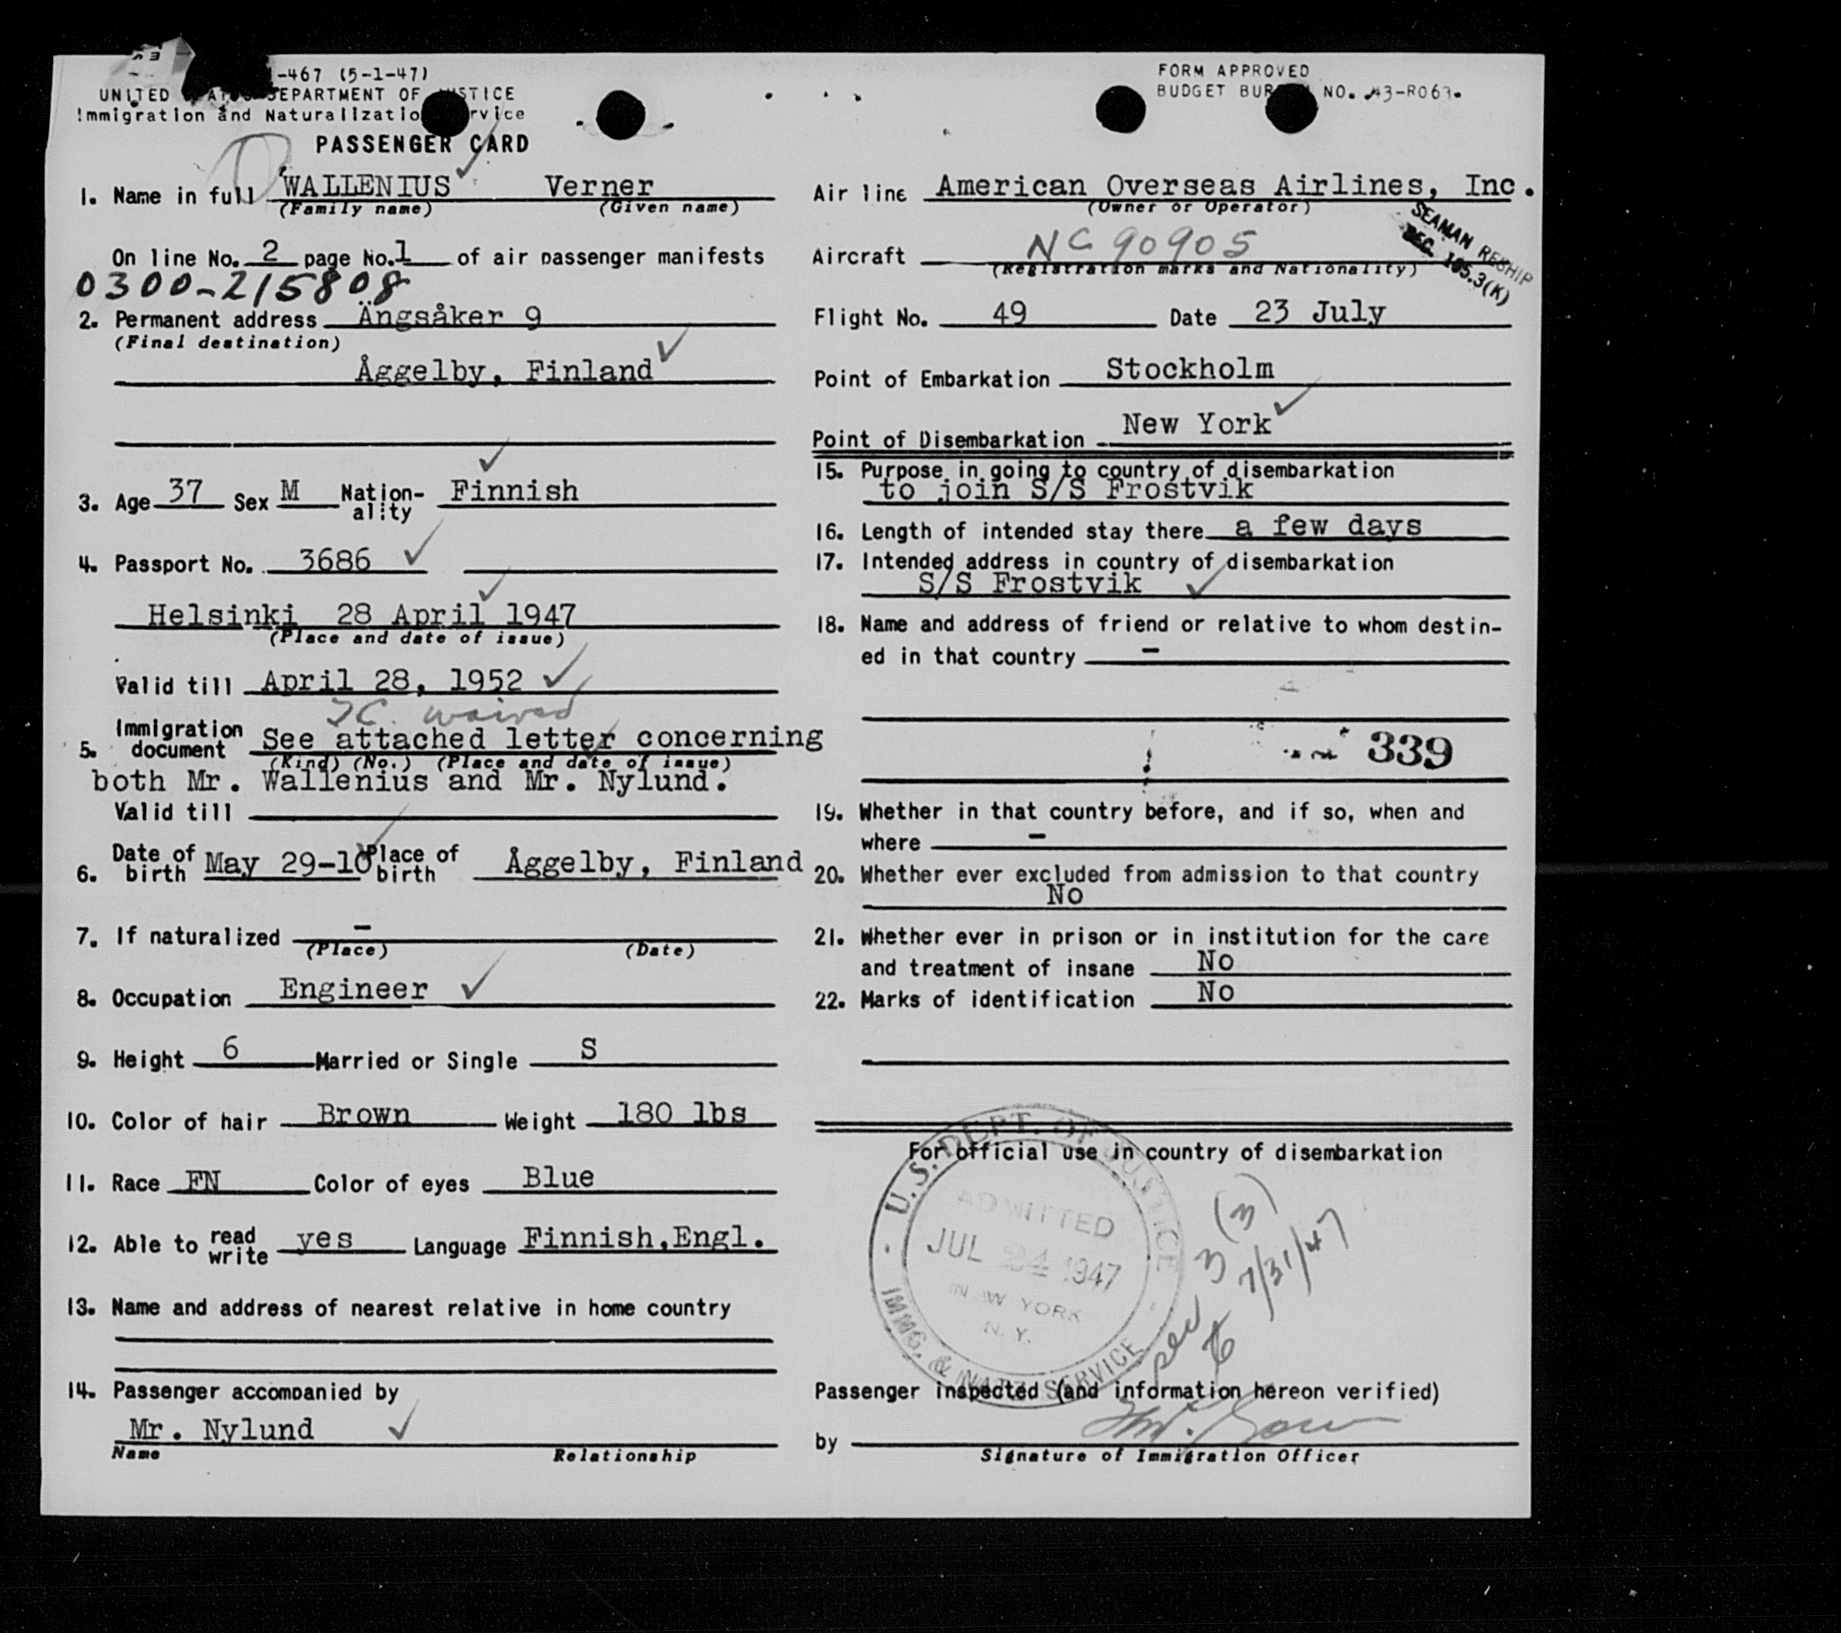 -467 (5-1-47)
UNITED DEPARTMENT OF JUSTICE
Immigration and Naturalization Service
PASSENGER CARD
FORM APPROVED
BUDGET BUREAU NO. 43-R063.
1. Name in full WALLENIUS Verner
(Family name) (Given name)
On line No. 2 page No. 1 of air passenger manifests
0300-215808
2. Permanent address Ängsåker 9
(Final destination)
Åggelby, Finland
3. Age 37 Sex M Nation-ality Finnish
4. Passport No. 3686
Helsinki 28 April 1947
(Place and date of issue)
Valid till April 28, 1952
waived
5. Immigration document See attached letter concerning
(Kind) (No.) (Place and date of issue)
both Mr. Wallenius and Mr. Nylund.
Valid till
6. Date of birth May 29-10 Place of birth Åggelby, Finland
7. If naturalized -
(Place) (Date)
8. Occupation Engineer
9. Height 6 Married or Single S
10. Color of hair Brown Weight 180 lbs
11. Race FN Color of eyes Blue
12. Able to read write yes Language Finnish,Engl.
13. Name and address of nearest relative in home country
14. Passenger accompanied by
Mr. Nylund
Name Relationship
Air line American Overseas Airlines, Inc.
(Owner or Operator)
SEAMAN RESHIP
SEC. 105.3(K)
Aircraft NC 90905
(Registration marks and Nationality)
Flight No. 49 Date 23 July
Point of Embarkation Stockholm
Point of Disembarkation New York
15. Purpose in going to country of disembarkation
to join S/S Frostvik
16. Length of intended stay there a few days
17. Intended address in country of disembarkation
S/S Frostvik
18. Name and address of friend or relative to whom destin-
ed in that country -
339
19. Whether in that country before, and if so, when and
where -
20. Whether ever excluded from admission to that country
No
21. Whether ever in prison or in institution for the care
and treatment of insane No
22. Marks of identification No
For official use in country of disembarkation
U.S. DEPT. OF JUSTICE
ADMITTED
JUL 24 1947
NEW YORK
N. Y.
IMMG. & NATZ. SERVICE
sec 3 (3)
7/31/47
Passenger inspected (and information hereon verified)
by
Signature of Immigration Officer